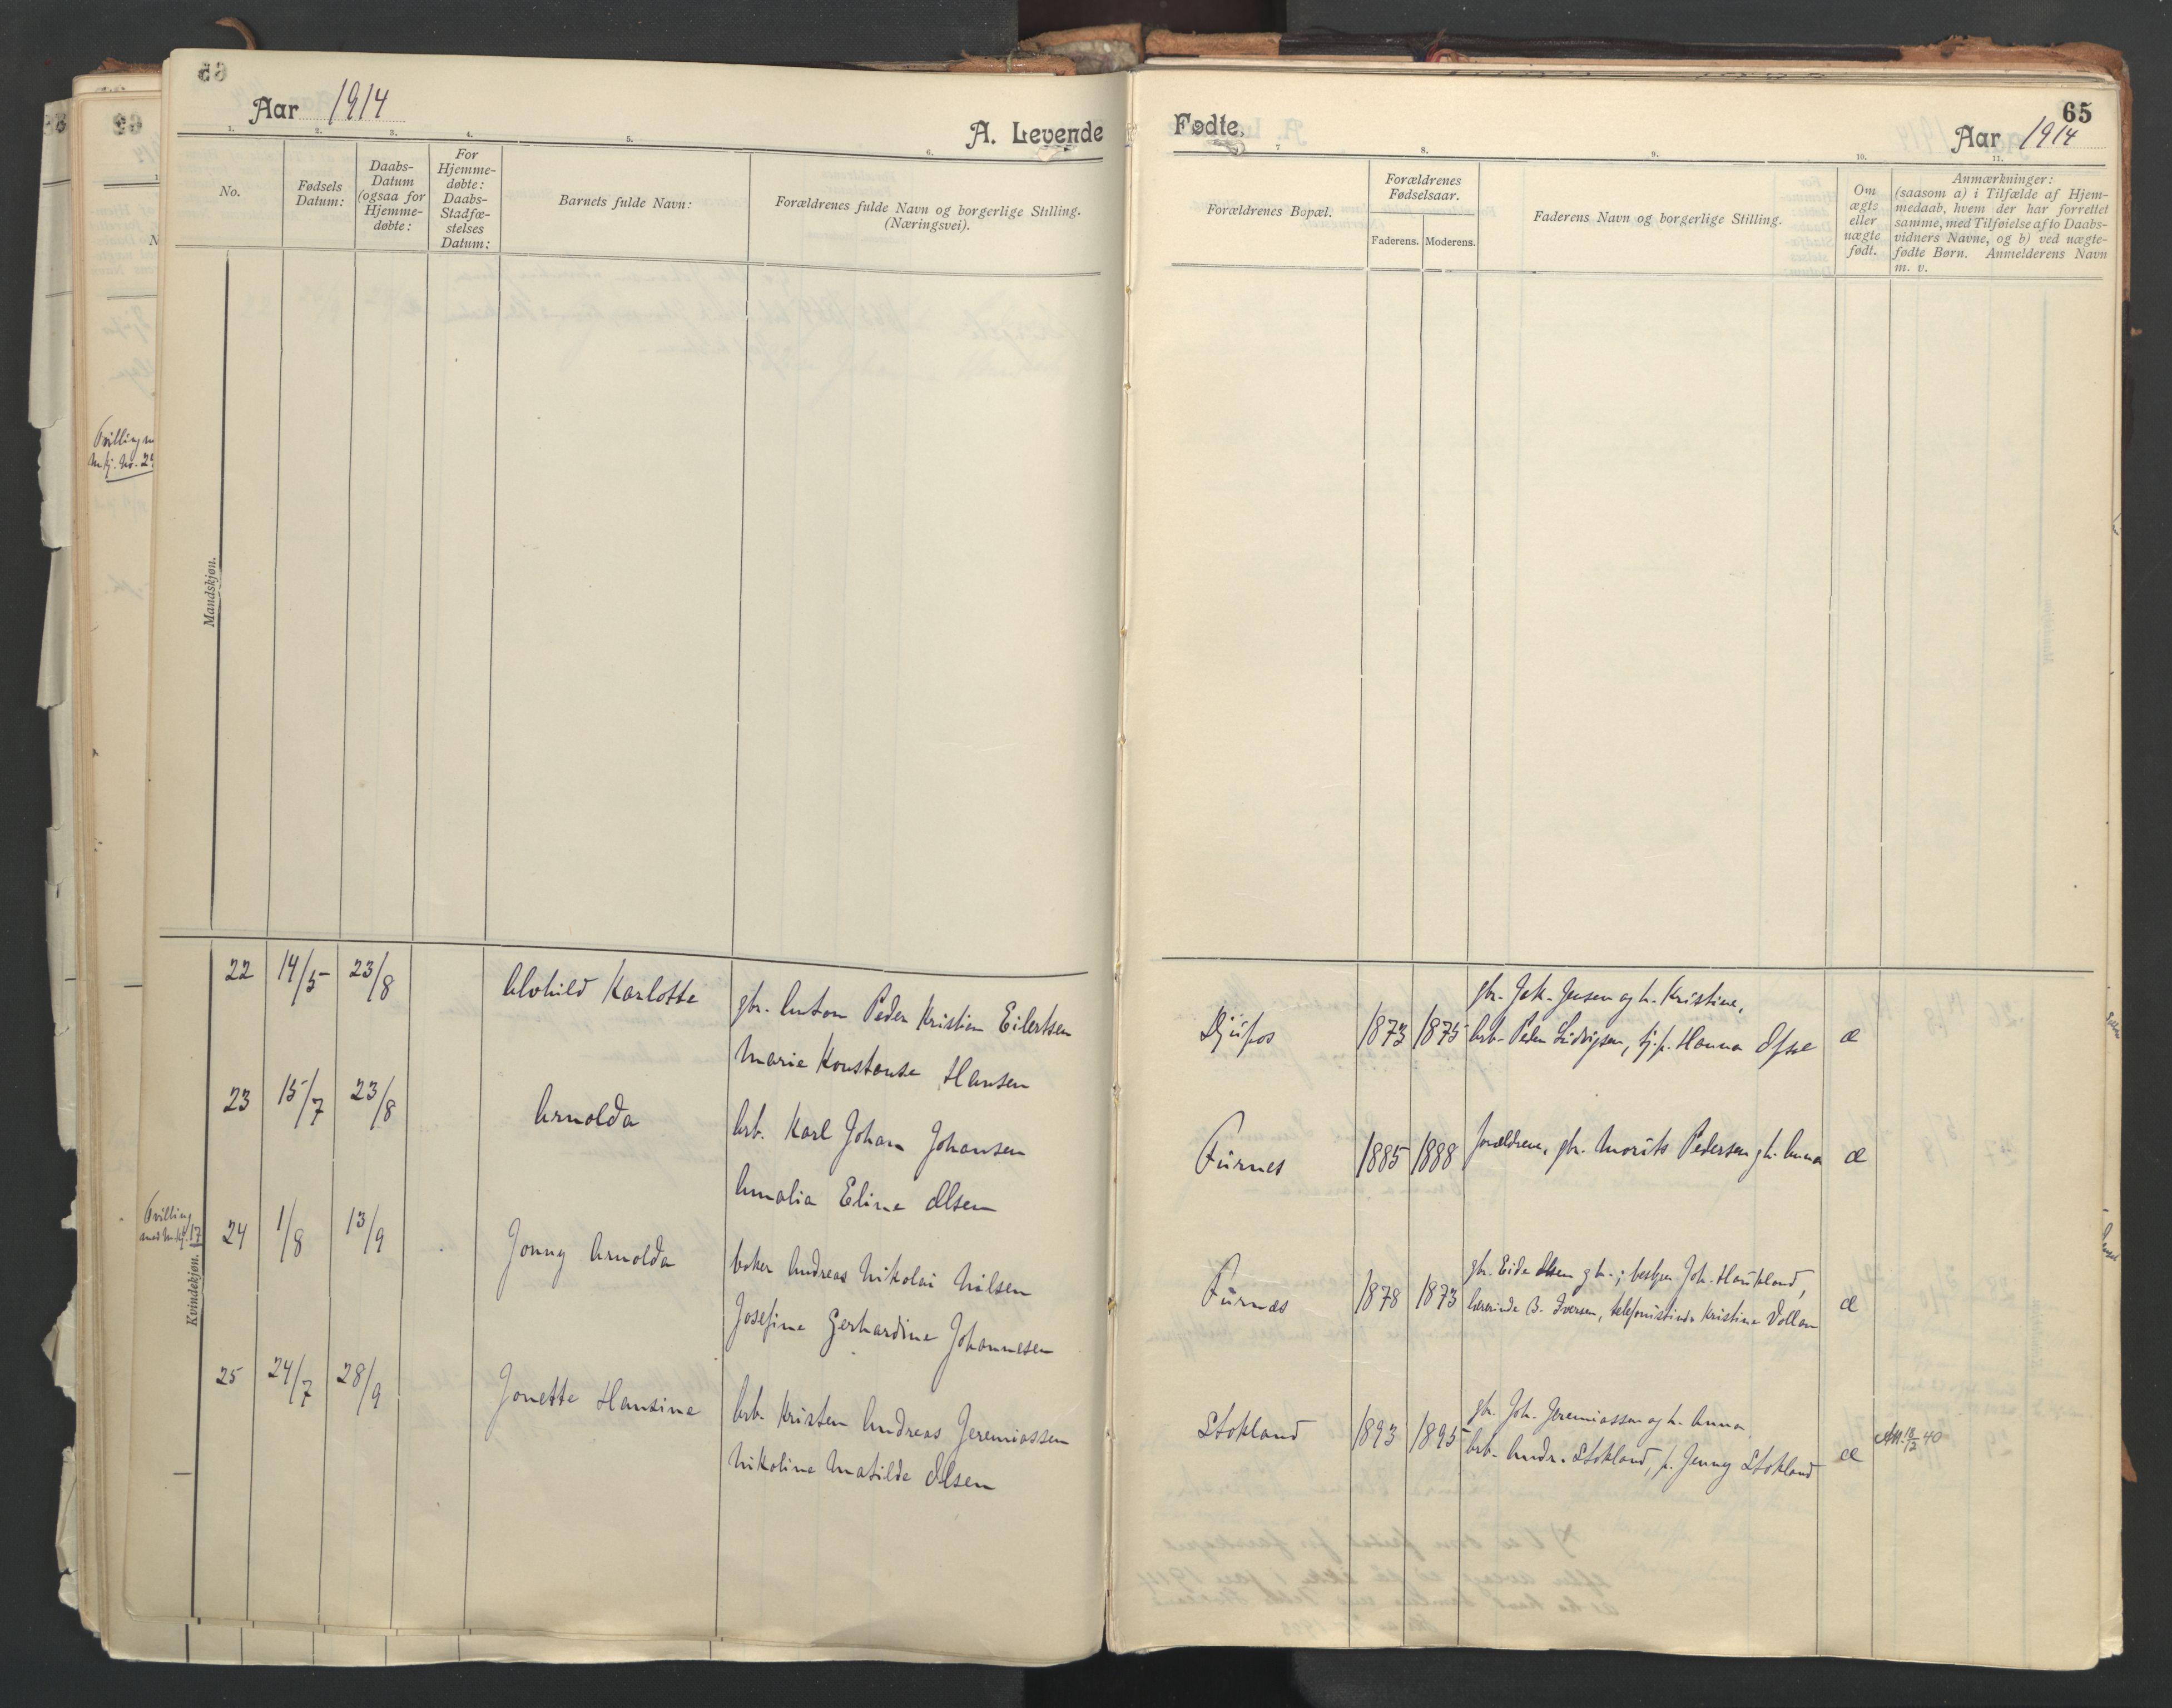 65
Aar 1914
A. Levende
Fødte.
65
Aar 1914
1. 2. 3. 4. 5. 6. 7 8. 9. 10. 11.
No.
Fødsels
Datum:
Daabs-
Datum
(ogsaa for
Hjemme-
døbte:
For
Hjemme-
døbte:
Daabs-
Stadfæ-
stelses
Datum:
Barnets fulde Navn:
Forældrenes fulde Navn og borgerlige Stilling.
(Næringsvei).
Forældrenes Bopæl.
Forældrenes
Fødselsaar.
Faderens. Moderens.
Faderens Navn og borgerlige Stilling.
Om
ægte
eller
uægte
født.
Anmærkninger:
(saasom a) i Tilfælde af Hjem-
medaab, hvem der har forrettet
samme, med Tilføielse af to Daabs-
vidners Navne, og b) ved uægte-
fødte Børn. Anmelderens Navn
m. v.
Mandskjøn.
Kvindekjøn.
22 14/5 23/8 Alvhild Karlotte
gbr. Anton Peder Kristian Eilertsen
Marie Konstanse Hansen
Djupos 1873 1875
gbr. Jak. Jensen og h. Kristine,
arb. Peder Ludvigsen, tj.p. Hanna
æ
23 15/7 23/8 Arnolda
arb. Karl Johan Johansen
Amalia Eline Olsen
Furnes 1885 1888
forældrene, gbr. Morits Pedersen h. Anna
æ
Tvilling
med Mkj. 17
24 1/8 13/9 Jonny Arnolda
baker Andreas Nikolai Nilsen
Josefine Gerhardine Johannesen
Furnes 1878 1873
gbr. Eide Olsen h.; bestyrer Joh. Haukland,
lærerinde B. Iversen, telefonistinde Kristine Vollan
æ
25 24/7 28/9 Jonette Hansine
arb. Kristen Andreas Jeremiassen
Nikoline Matilde Olsen
Stokland 1893 1895
gbr. Joh. Jeremiassen og h. Anna
arb. Andr. Stokland, p. Jenny Stokland
æ
Att. 12/2 40